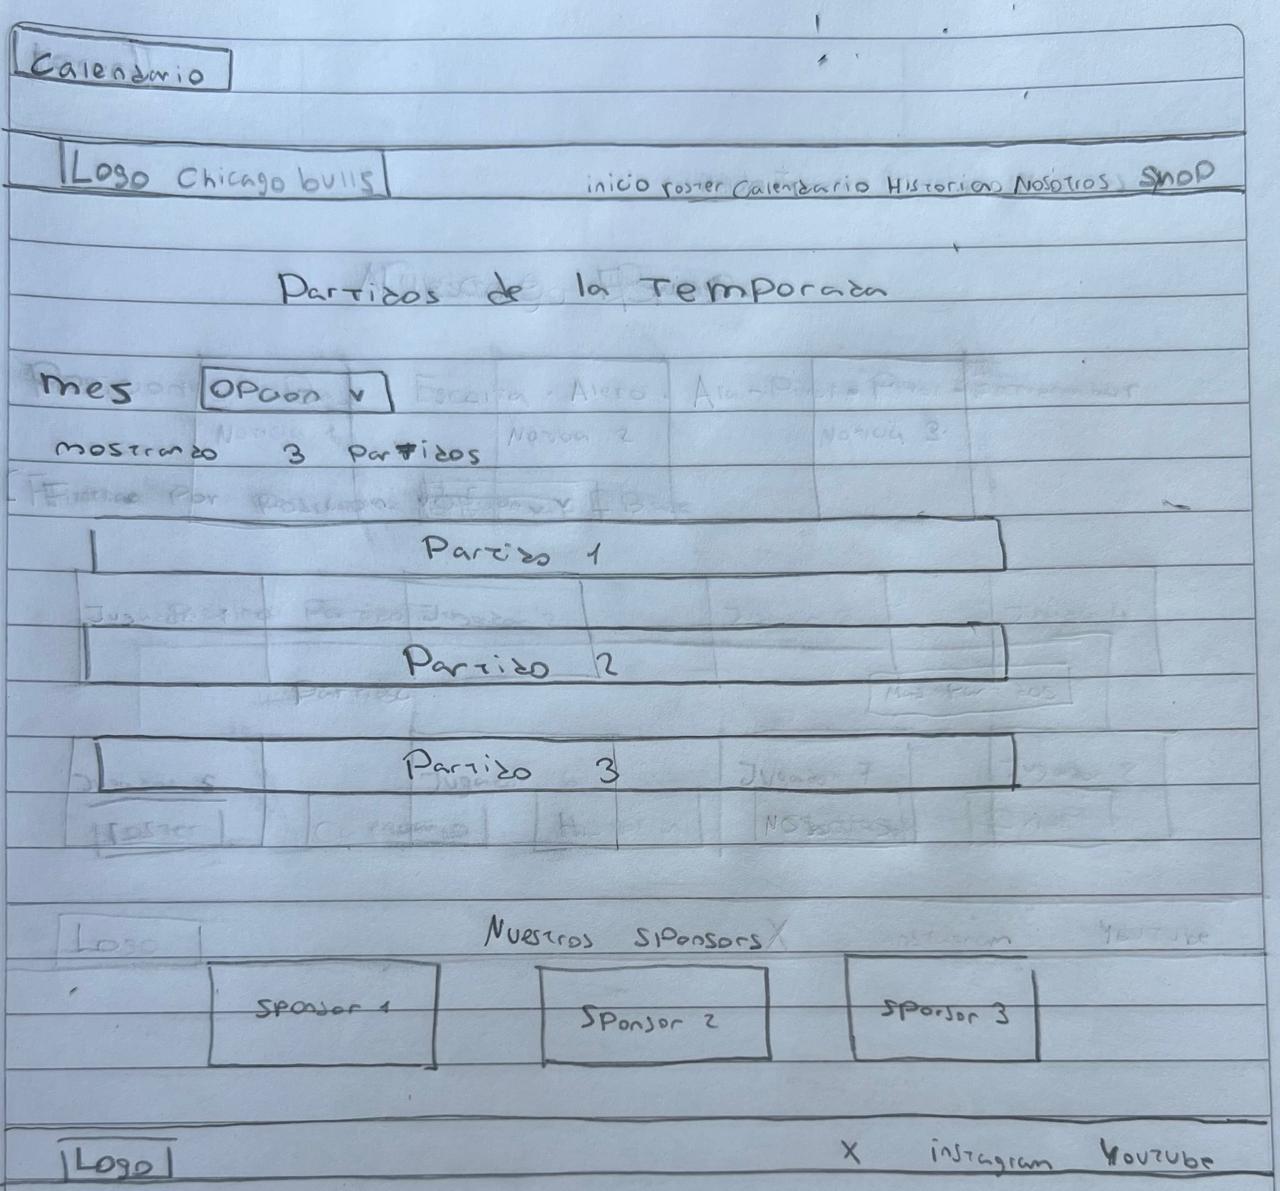 Calendario
Logo Chicago bulls inicio roster Calendario Historia Nosotros SHOP
Partidos de la Temporada
mes Opcion v
mostrando 3 partidos
Partido 1
Partido 2
Partido 3
Nuestros Sponsors
Sponsor 1 Sponsor 2 Sponsor 3
Logo X instagram Youtube